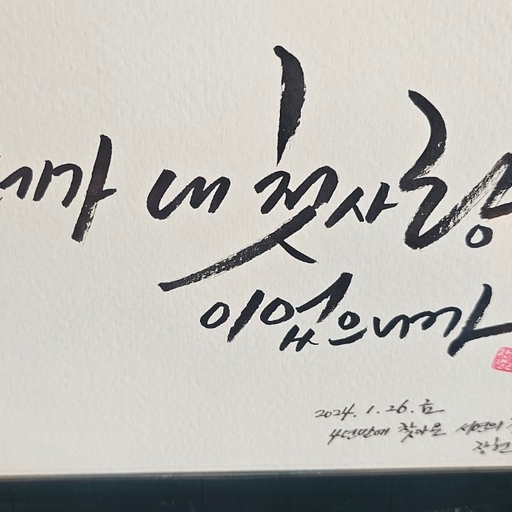 내 첫사랑
이었으니까
2024. 1. 26. 금
4년만에 찾아온 서연의